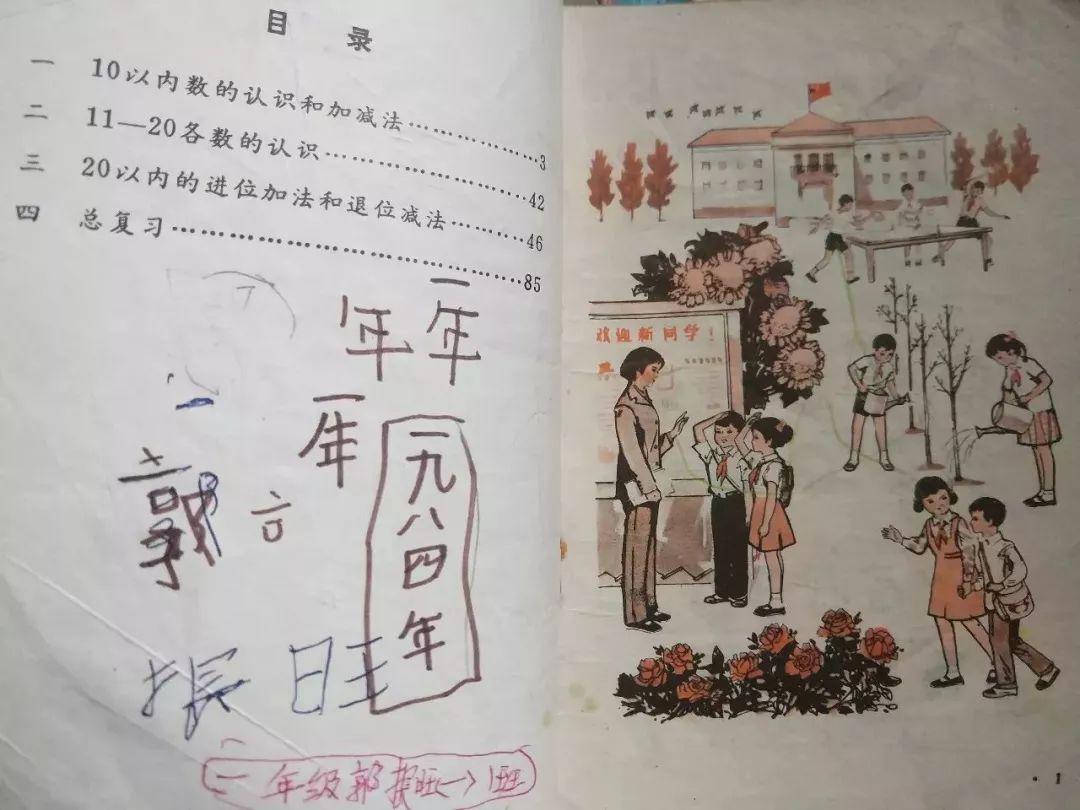 目录
一 10以内数的认识和加减法……………3
二 11—20各数的认识……………42
三 20以内的进位加法和退位减法……46
四 总复习……………85
一年
年
一年
一九八四年
郭
振旺
一年级郭振旺
欢迎新同学！
·1